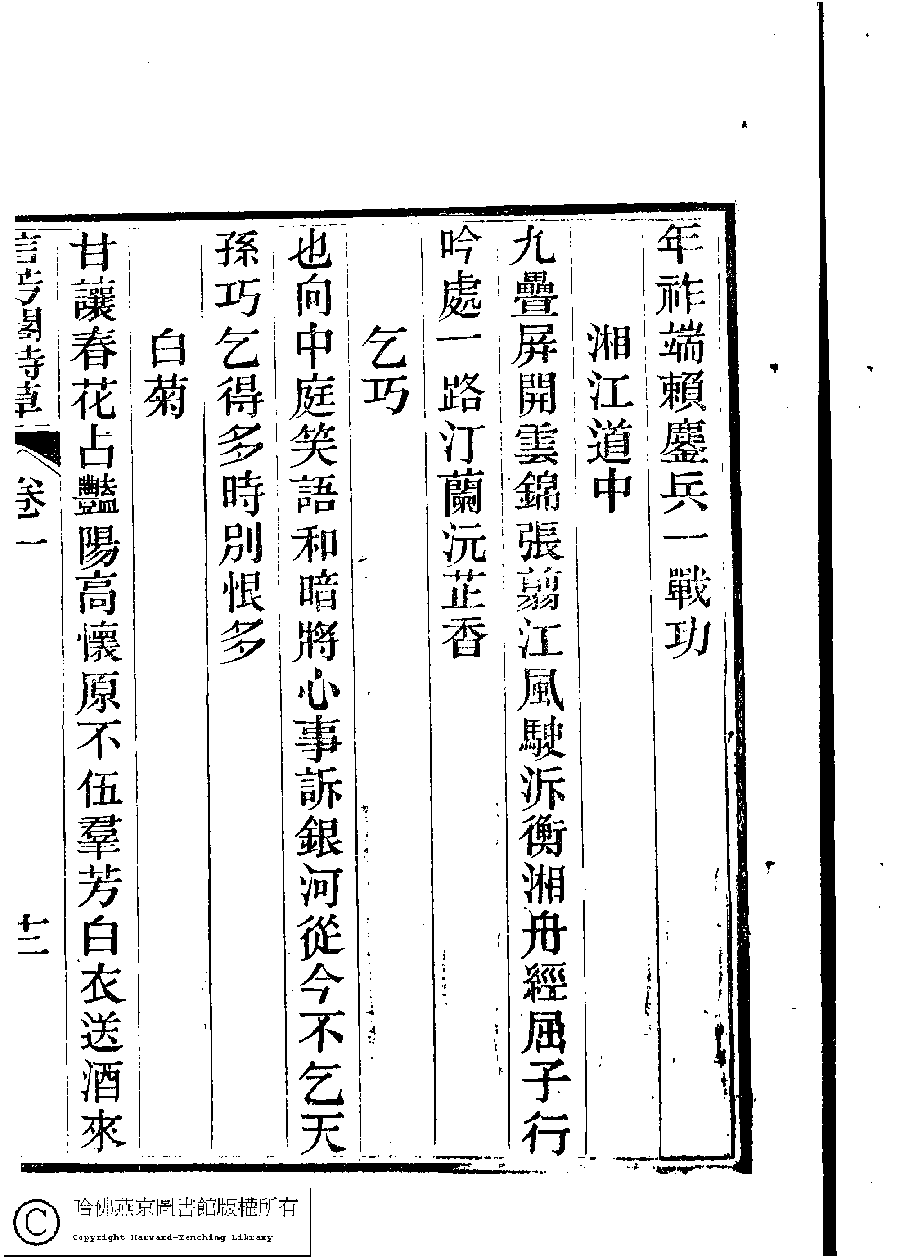 年祚端賴鏖兵一戰功
湘江道中
九疊屏開雲錦張翦江風駛泝衡湘舟經屈子行
吟處一路汀蘭沅芷香
乞巧
也向中庭笑語和暗將心事訴銀河從今不乞天
孫巧乞得多時別恨多
白菊
甘讓春花占豔陽高懷原不伍羣芳白衣送酒來
芳閣詩草 卷一 十二
哈佛燕京圖書館版權所有
Copyright Harvard-Yenching Library